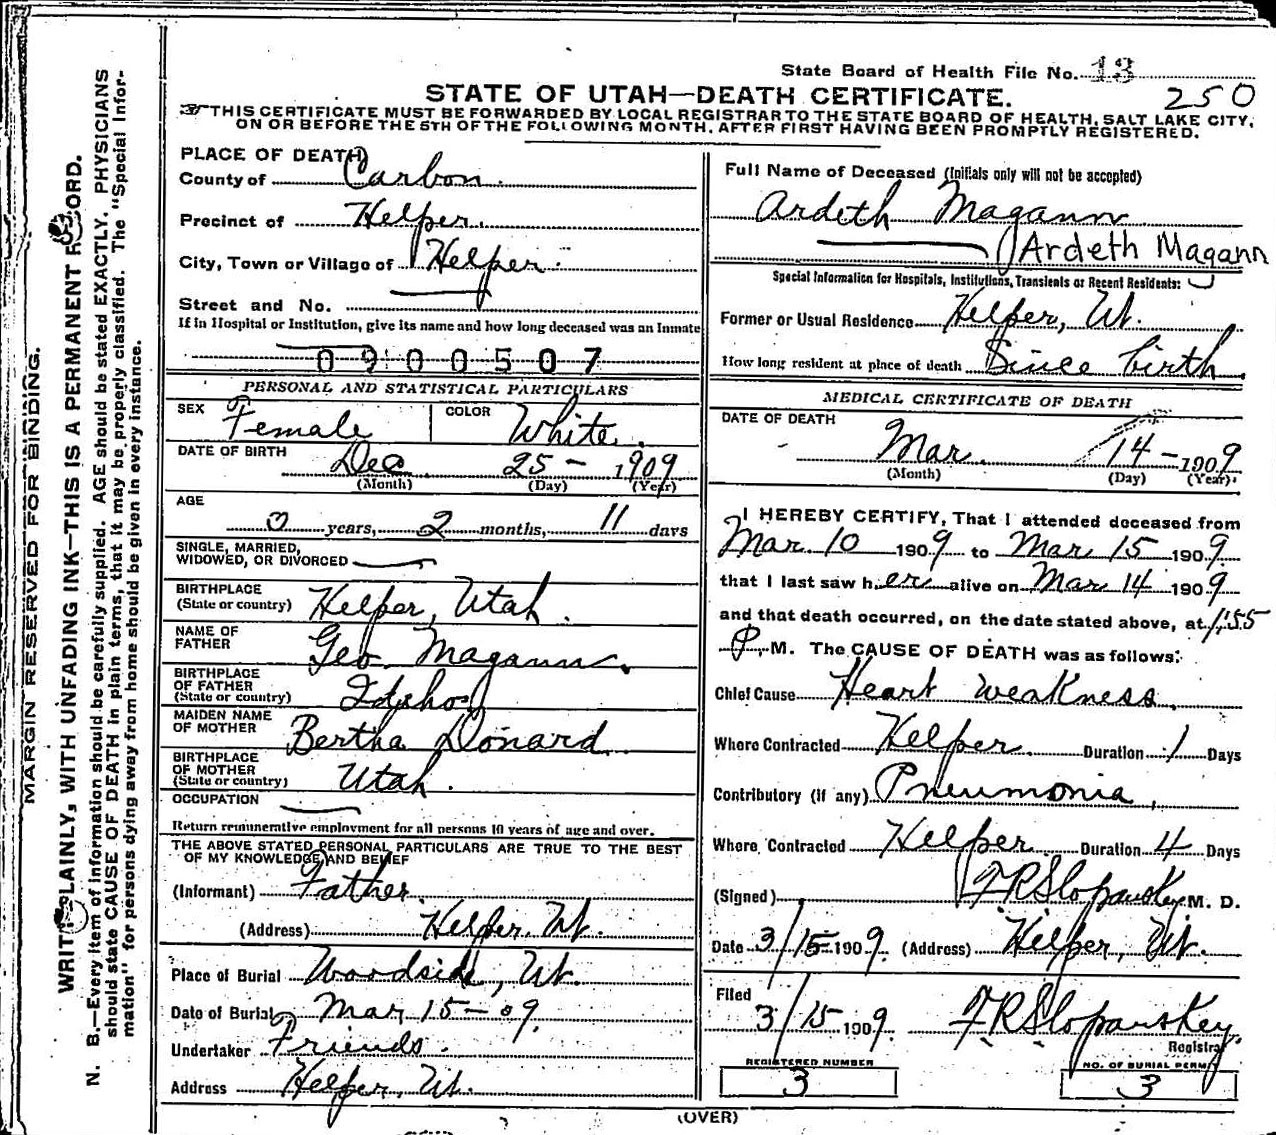 State Board of Health File No. 13
250
STATE OF UTAH—DEATH CERTIFICATE.
THIS CERTIFICATE MUST BE FORWARDED BY LOCAL REGISTRAR TO THE STATE BOARD OF HEALTH, SALT LAKE CITY,
ON OR BEFORE THE 5TH OF THE FOLLOWING MONTH, AFTER FIRST HAVING BEEN PROMPTLY REGISTERED.
MARGIN RESERVED FOR BINDING.
WRITE PLAINLY, WITH UNFADING INK—THIS IS A PERMANENT RECORD.
N. B.—Every item of information should be carefully supplied. AGE should be stated EXACTLY. PHYSICIANS
should state CAUSE OF DEATH in plain terms, that it may be properly classified. The "Special Infor-
mation" for persons dying away from home should be given in every instance.
PLACE OF DEATH
County of Carbon.
Precinct of Helper.
City, Town or Village of Helper.
Street and No.
If in Hospital or Institution, give its name and how long deceased was an Inmate
0900507
PERSONAL AND STATISTICAL PARTICULARS
SEX Female COLOR White.
DATE OF BIRTH Dec 25 - 1909
(Month) (Day) (Year)
AGE
0 years, 2 months, 11 days
SINGLE, MARRIED,
WIDOWED, OR DIVORCED
BIRTHPLACE
(State or country) Helper, Utah.
NAME OF
FATHER Geo. Magann.
BIRTHPLACE
OF FATHER
(State or country) Idaho
MAIDEN NAME
OF MOTHER Bertha Donard
BIRTHPLACE
OF MOTHER
(State or country) Utah.
OCCUPATION
Return remunerative employment for all persons 10 years of age and over.
THE ABOVE STATED PERSONAL PARTICULARS ARE TRUE TO THE BEST
OF MY KNOWLEDGE AND BELIEF
(Informant) Father.
(Address) Helper, Ut.
Place of Burial Woodside, Ut.
Date of Burial Mar 15-09.
Undertaker Friends.
Address Helper, Ut.
Full Name of Deceased (Initials only will not be accepted)
Ardeth Magann
Ardeth Magann
Special Information for Hospitals, Institutions, Transients or Recent Residents:
Former or Usual Residence Helper, Ut.
How long resident at place of death Since birth.
MEDICAL CERTIFICATE OF DEATH
DATE OF DEATH
Mar. 14-1909
(Month) (Day) (Year).
I HEREBY CERTIFY, That I attended deceased from
Mar. 10 1909 to Mar 15 1909.
that I last saw her alive on Mar 14 1909
and that death occurred, on the date stated above, at 1:55
P. M. The CAUSE OF DEATH was as follows:
Chief Cause Heart weakness.
Where Contracted Helper. Duration 1 Days
Contributory (if any) Pneumonia.
Where Contracted Helper Duration 4 Days
(Signed) F R Slopanskey M. D.
Date 3/15-1909 (Address) Helper, Ut.
Filed
3/15 1909. F R Slopanskey
Registrar
REGISTERED NUMBER
3
NO. OF BURIAL PERMIT
3
(OVER)